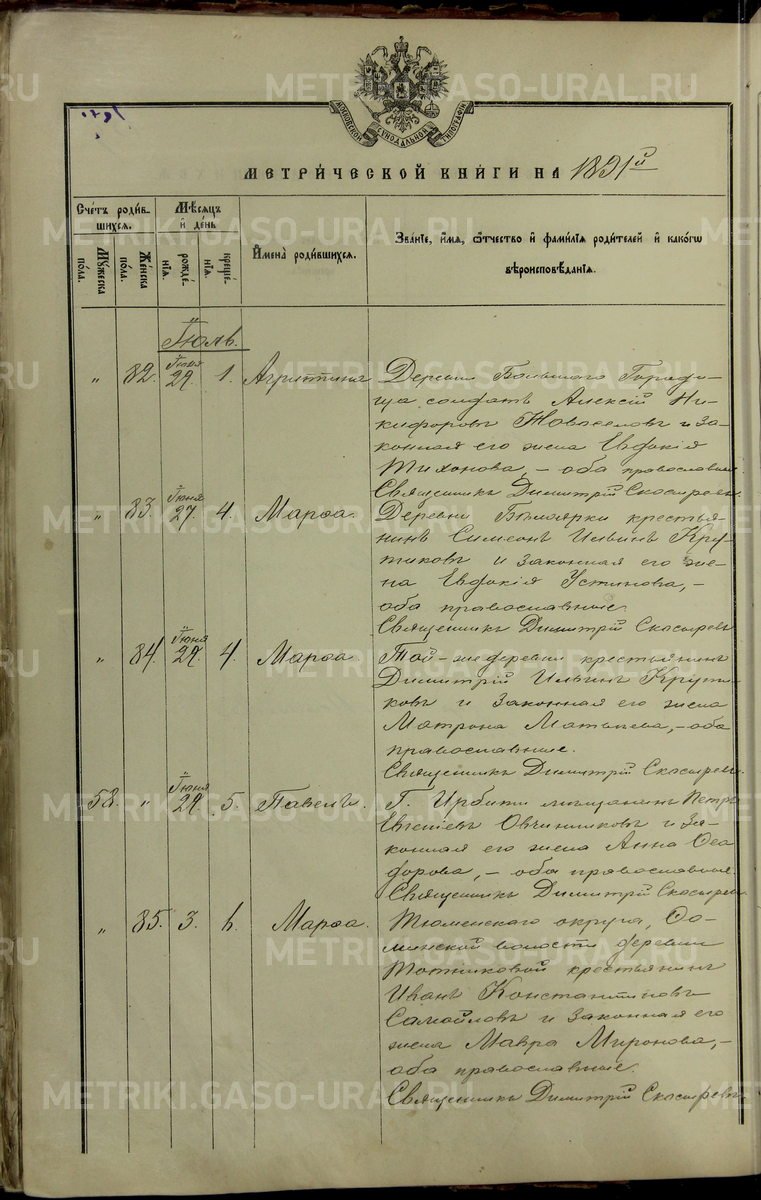 METRIKI.GASO-URAL.RU
МОСКОВСКОЙ СѴНОДАЛЬНОЙ ТИПОГРАФІИ
МЕТРИ́ЧЕСКОЙ КНИ́ГИ НА 1891й
Сче́тъ роди́в-
шихся.
Му́жеска
по́ла.
Же́нска
по́ла.
Мѣ́сяцъ
и҆ де́нь
рожде́-
нїя.
креще́-
нїя.
И҆мена̀ роди́вшихся.
Зва́нїе, и҆́мя, ѻ҆́тчество и҆ фами́лїя роди́телей и҆ како́гѡ
вѣроисповѣ́данїя.
Іюль.
„ 82. Іюня 29. 1. Агриппина
Деревни Большаго Городи-
ща солдатъ Алексій Ни-
кифоровъ и за-
конная его жена Евдокія
Тихонова, – оба православные.
Священникъ Димитрій Скосыревъ.
„ 83. Іюня 27. 4. Марѳа.
Деревни Бѣлоярки крестья-
нинъ Симеонъ Ильинъ Кру-
тиковъ и законная его же-
на Евдокія Устинова, –
оба православные.
Священникъ Димитрій Скосыревъ
„ 84. Іюня 29. 4. Марѳа.
Той-же деревни крестьянинъ
Димитрій Ильинъ Крути-
ковъ и законная его жена
Матрона Матвѣева, – оба
православные.
Священникъ Димитрій Скосыревъ.
58. „ Іюня 29. 5. Павелъ.
Г. Ирбити мѣщанинъ Петръ
Евгеніевъ Овчинниковъ и за-
конная его жена Анна Ѳеo-
дорова, – оба православные.
Священникъ Димитрій Скосыревъ.
„ 85. 3. 6. Марѳа.
Тюменскаго округа, Ѳо-
минской волости деревни
крестьянинъ
Иванъ Константиновъ
Самойловъ и законная его
жена Мавра Миронова, –
оба православные.
Священникъ Димитрій Скосыревъ.